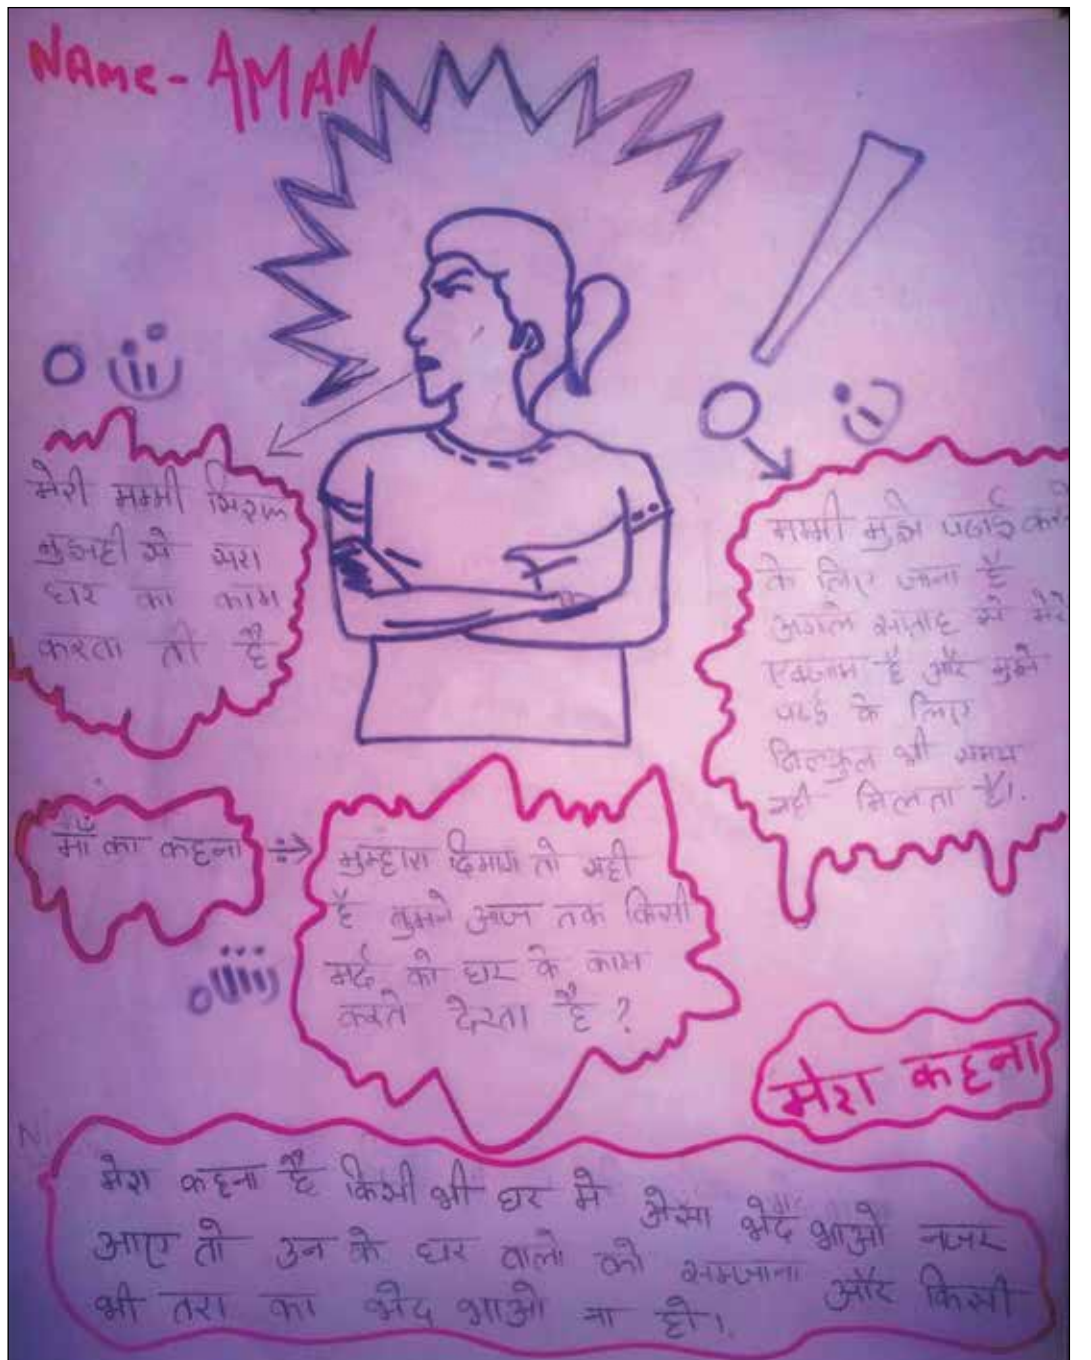 NAME - AMAN
मेरी मम्मी सिरफ
मुझही से सरा
घर का काम
करता ती है
मम्मी मुझे पढाई करने
के लिए जाना है
अगले सप्ताह से मेरे
एक्जाम है और मुझे
पढई के लिए
बिल्कुल भी समय
नही मिलता है।
माँ का कहना
तुम्हारा दिमाग तो सही
है तुमने आज तक किसी
मर्द को घर के काम
करते देखा है ?
मेरा कहना
मेरा कहना है किसी भी घर मे अैसा भेद भाओ नजर
आए तो उन के घर वालो को समजाना और किसी
भी तरा का भेद भाओ ना हो।